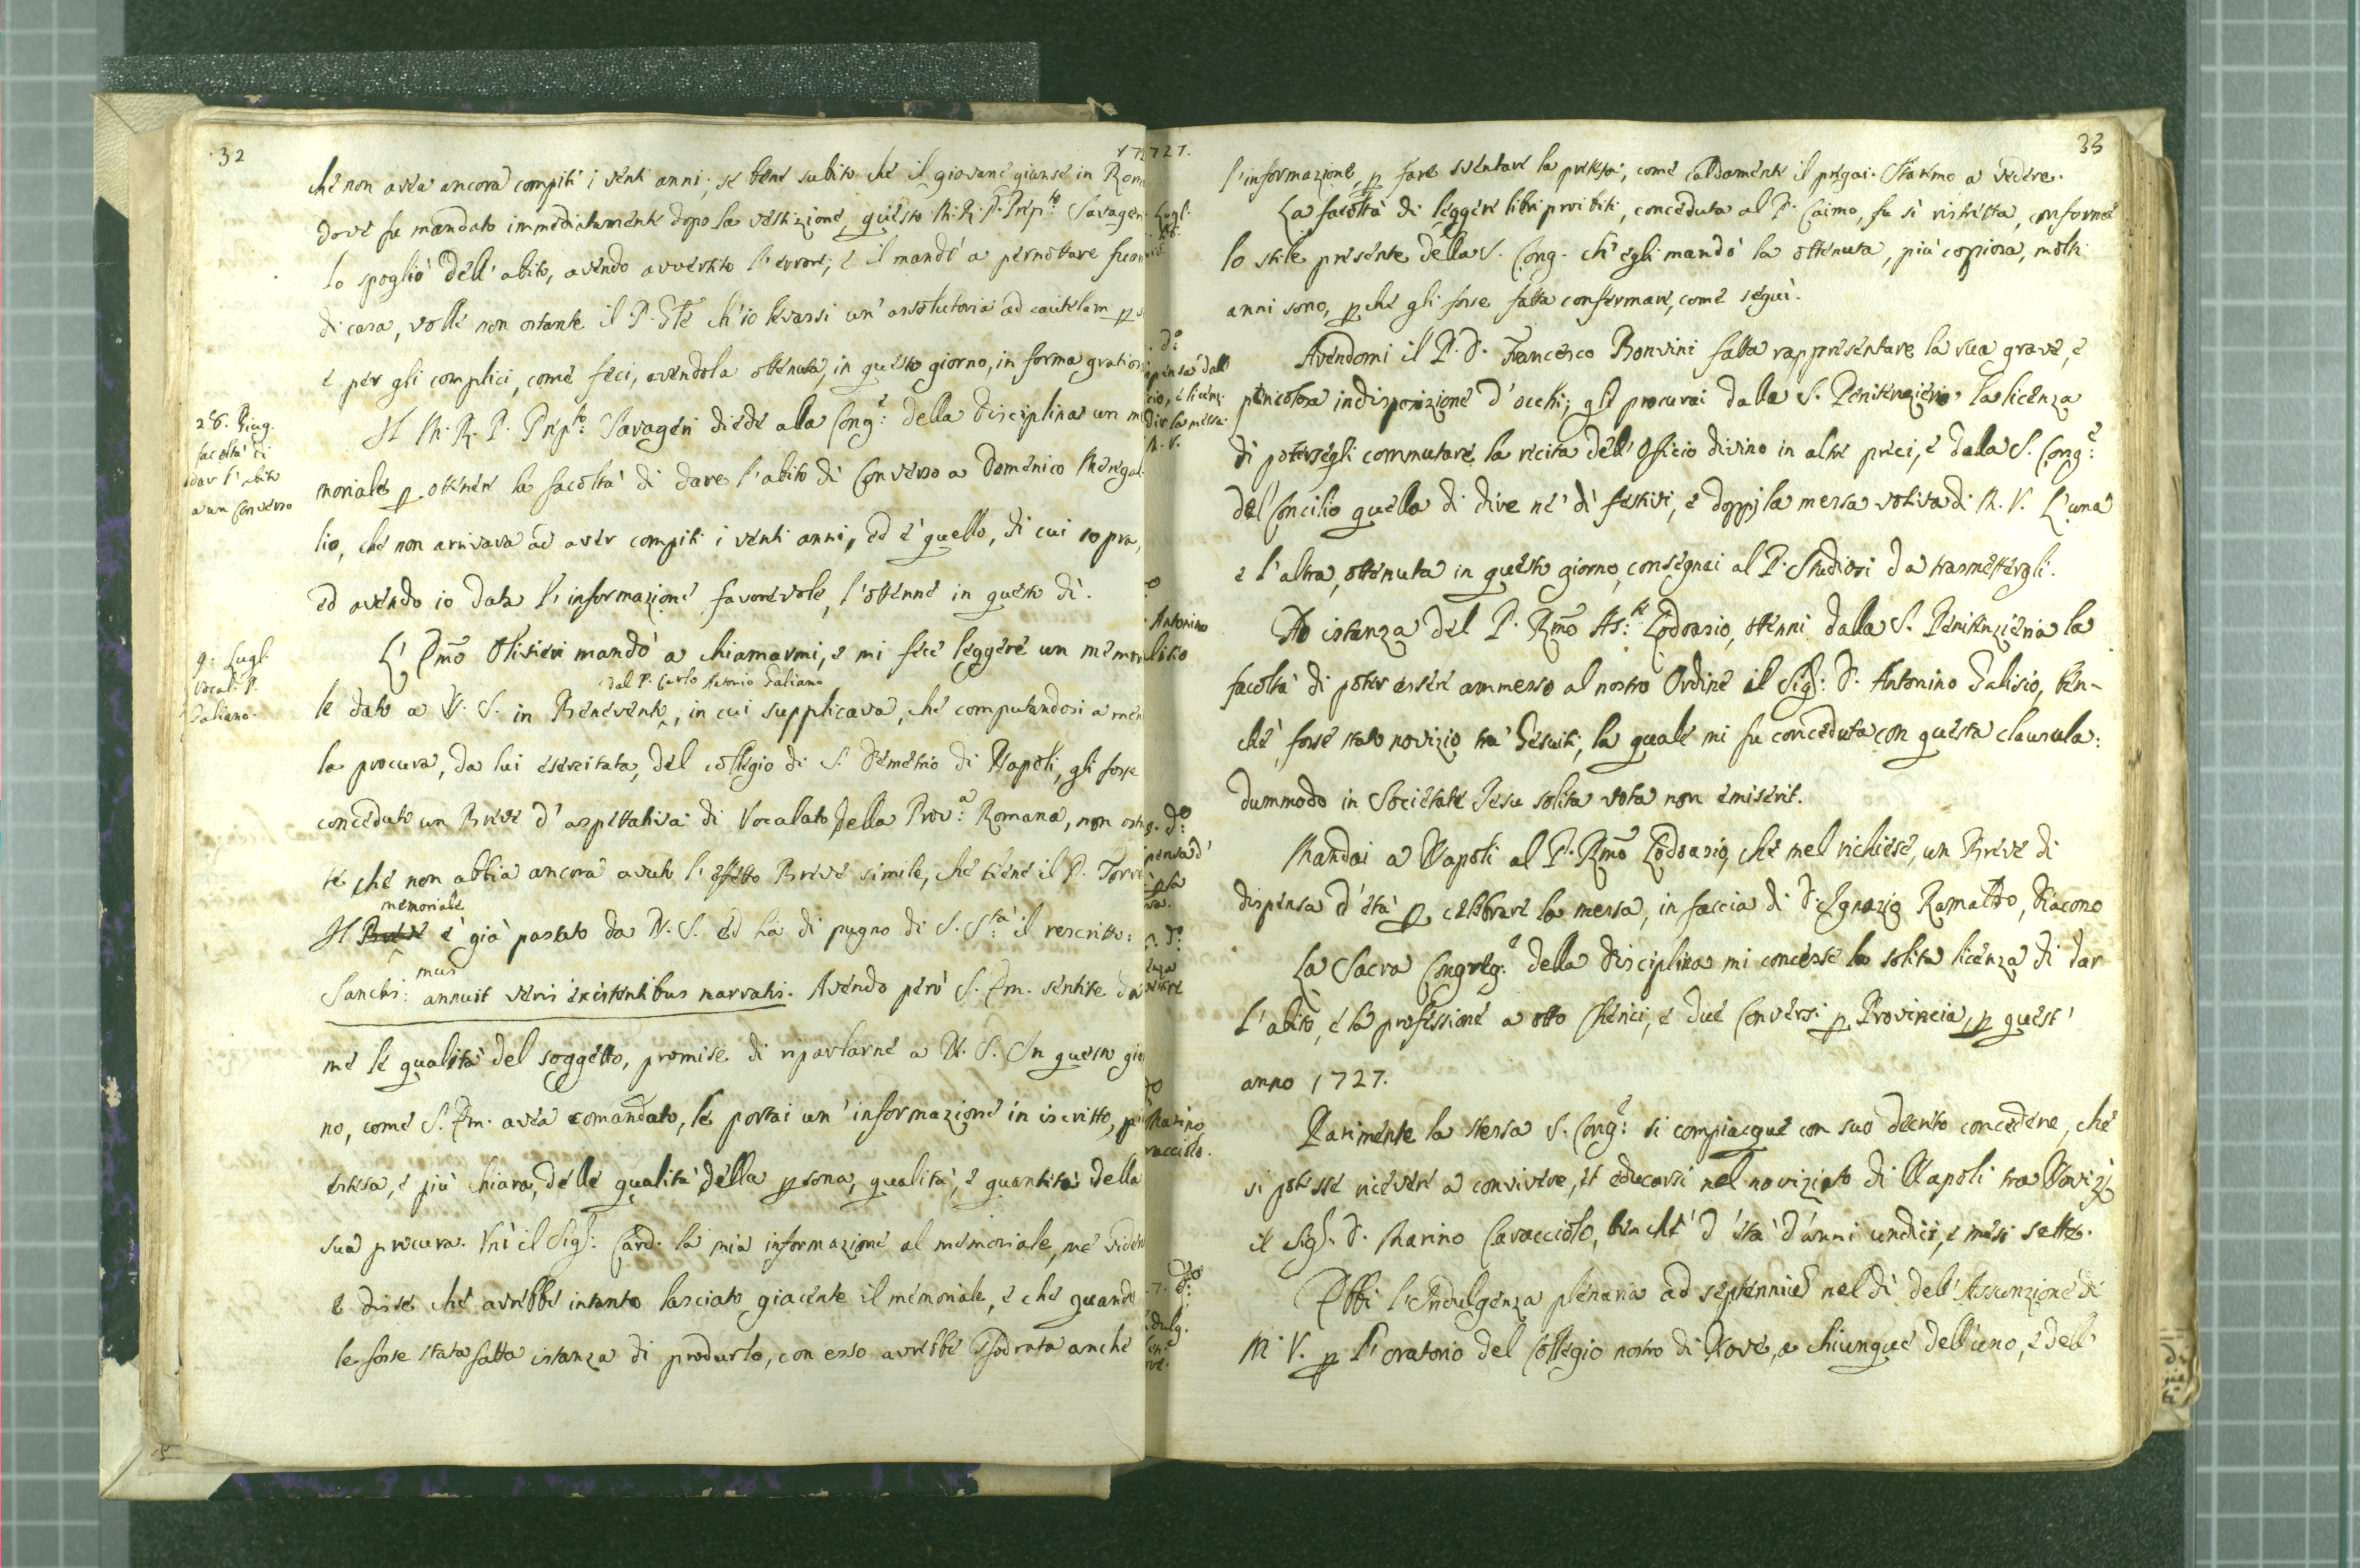 32
172
che non avea ancora compiti i venti anni; se bene subito che il giovane giunse in Rom
dove fu mandato immediatamente dopo la vestizione, questo M. R. P. Prep.to Savageri
lo spogliò dell' abito, avendo avvertito l'errore; e il mandò a pernottare fuor
di casa, volle non ostante il P. Gle ch'io levassi un' assolutoria ad cautelam p s
e per gli complici, come feci, avendola ottenuta, in questo giorno, in forma gratios
28. Giug.
facoltà di
dar l'abito
a un Converso
Il M. R. P. Prep.to Savageri diede alla Cong.e della Disciplina un me
moriale p ottenere la facoltà di dare l'abito di Converso a Domenico Meregal
lio, che non arrivava ad aver compiti i venti anni, ed è quello, di cui sopra,
ed avendo io data l'informazione favorevole, l'ottenne in questo dì.
9. Lugl.
Vocal. P.
Galiano.
L' Emo Olivieri mandò a chiamarmi, e mi fece leggere un memor
dal P. Carlo Antonio Galiano
le dato a N. S. in Benevento, in cui supplicava, che computandosi a men
la procura, da lui esercitata, del collegio di S. Demetrio di Napoli, gli fosse
conceduto un Breve d' aspettativa di Vocalato della Prov.a Romana, non ostan
te che non abbia ancora avuto l'effetto Breve simile, che tiene il P. Torre
memoriale
Il Breve è già passato da N. S. ed hà di pugno di S. S.tà il rescritto:
Sanctis:mus annuit veris existentibus narratis. Avendo però S. Em. sentite da
me le qualità del soggetto, promise di riparlarne a N. S. In questo gior
no, come S. Em. avea comandato, le portai un' informazione in iscritto, più
estesa, e più chiara, delle qualità della psona, qualità, e quantità della
sua procura. Unì il Sig.r Card. la mia informazione al memoriale, me vidente
e disse che avrebbe intanto lasciato giacente il memoriale, e che quando
le fosse stata fatta istanza di produrlo, con esso avrebbe prodotta anche
727.
33
l'informazione, p fare sventare la pretesa, come caldamente il pregai. Staremo a vedere.
Lugl.
La facoltà di leggere libri proibiti, conceduta al P. Caimo, fu sì ristretta, conforme
lo stile presente della S. Cong. ch' egli mandò la ottenuta, più copiosa, molti
anni sono, pchè gli fosse fatta confermare, come seguì.
d.o
pensa dall
cio, e licenz.
dir la messa
M. V.
Avendomi il P. D. Francesco Bonvini fatta rappresentare la sua grave, e
pericolosa indisposizione d' occhi; gli procurai dalla S. Penitenzieria la licenza
di potersegli commutare la recita dell' Officio divino in altre preci, e dalla S. Cong.e
del Concilio quella di dire ne' dì festivi, e doppj la messa votiva di M. V. L'una
e l'altra, ottenuta in questo giorno, consegnai al P. Studiosi da trasmettergli.
Antonino
lisio
Ad istanza del P. Rmo Ass.te Lodovasio, ottenni dalla S. Penitenzieria la
facoltà di poter essere ammesso al nostro Ordine il Sig.r D. Antonino Dalisio, ben-
chè fosse stato novizio tra' Gesuiti, la quale mi fu conceduta con questa clausula:
dummodo in Societate Jesu solita vota non emiserit.
d.o
pensa d'
Mandai a Napoli al P. Rmo Lodovasio, che mel richiese, un Breve di
dispensa d' età p celebrare la messa, in faccia di D. Ignazio Ramaldo, Diacono
d.o
La Sacra Congreg.e della Disciplina mi concesse la solita licenza di dar
l' abito, e la professione a otto Cherici, e due Conversi p Provincia, p quest'
anno 1727.
Marino
racciolo.
Parimente la stessa S. Cong.e si compiacque con suo decreto concedere, che
si potesse ricevere a convivere, et educarsi nel noviziato di Napoli tra Novizj
il Sig.r D. Marino Caracciolo, benchè d' età d' anni undici, e mesi sette.
7. d.o
dulg.
Ebbi l'Indulgenza plenaria ad septennium nel dì dell' Assunzione di
M. V. p l'oratorio del Collegio nostro di Nove, a chiunque dell'uno, e dell'